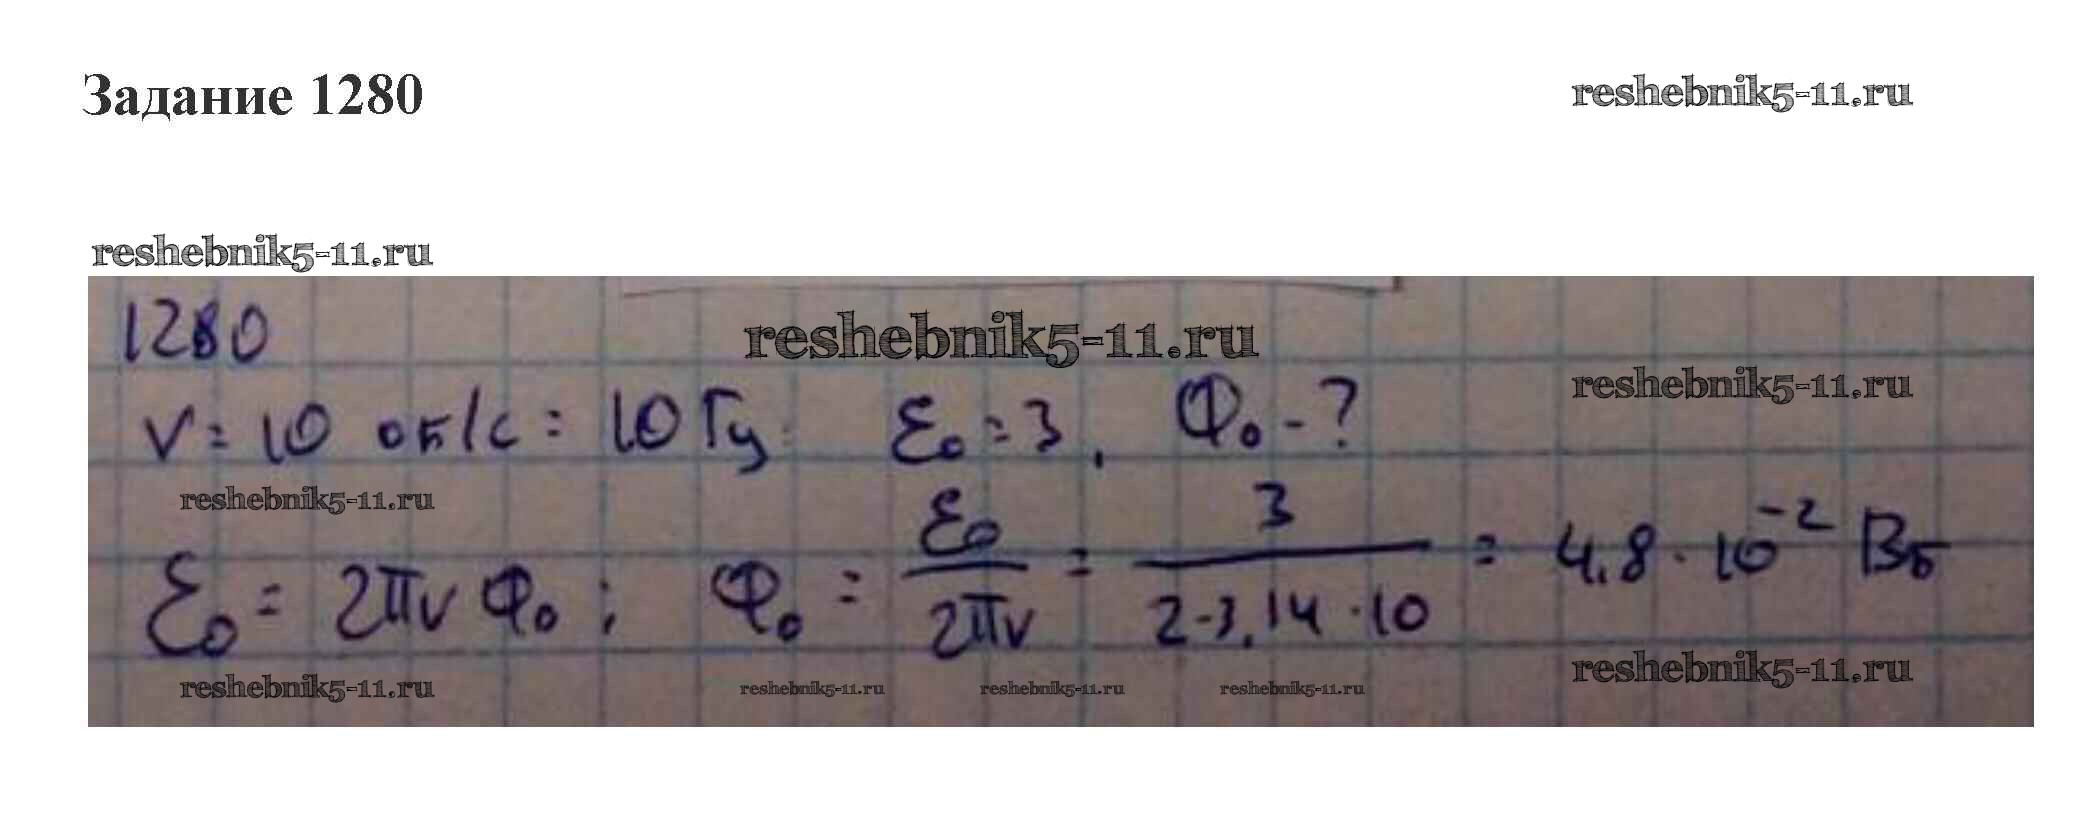 Задание 1280
reshebnik5-11.ru
reshebnik5-11.ru
1280
reshebnik5-11.ru
reshebnik5-11.ru
ν = 10 об/с = 10 Гц ℰ₀ = 3, Φ₀ - ?
reshebnik5-11.ru
ℰ₀ = 2πν Φ₀; Φ₀ = ℰ₀/2πν = 3/2·3,14·10 = 4,8·10⁻² Вб
reshebnik5-11.ru
reshebnik5-11.ru
reshebnik5-11.ru
reshebnik5-11.ru
reshebnik5-11.ru